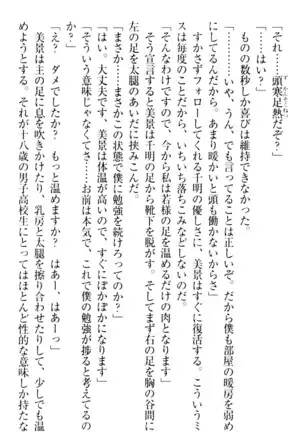 「それ……頭寒足熱だぞ？」
「……はい？」
ものの数秒しか喜びは維持できなかった。
「……いや、うん、でも言ってることは正しいぞ。だから僕も部屋の暖房を弱め
にしてるんだから。あまり暖かいと頭も働かないからさ」
すかさずフォローしてくれる千明の優しさに、美景はすぐに復活する。こういうミ
スは毎度のことだから、いちいち落ちこみなどしない。
「そんなわけですので、今から私は若様の足を温めるだけの肉となります」
そう宣言すると美景は千明の足から靴下を脱がす。そしてまず右の足を胸の谷間に
左の足を太腿のあいだに挟みこんだ。
「まさか……まさかこの状態で僕に勉強を続けろってのか？」
「はい。大丈夫です、美景は体温が高いので、すぐにぽかぽかになります」
「そういう意味じゃなくてさ……お前は本気で、これで僕の勉強が捗ると考えてるの
か？」
「え？　ダメでしたか？　もっと温めますか？　はあー、はあーっ」
美景は主の足に息を吹きかけたり、乳房と太腿を擦り合わせたりして、少しでも温
めようとする。それが十八歳の男子高校生にとってはほとんど性的な意味しか持たな